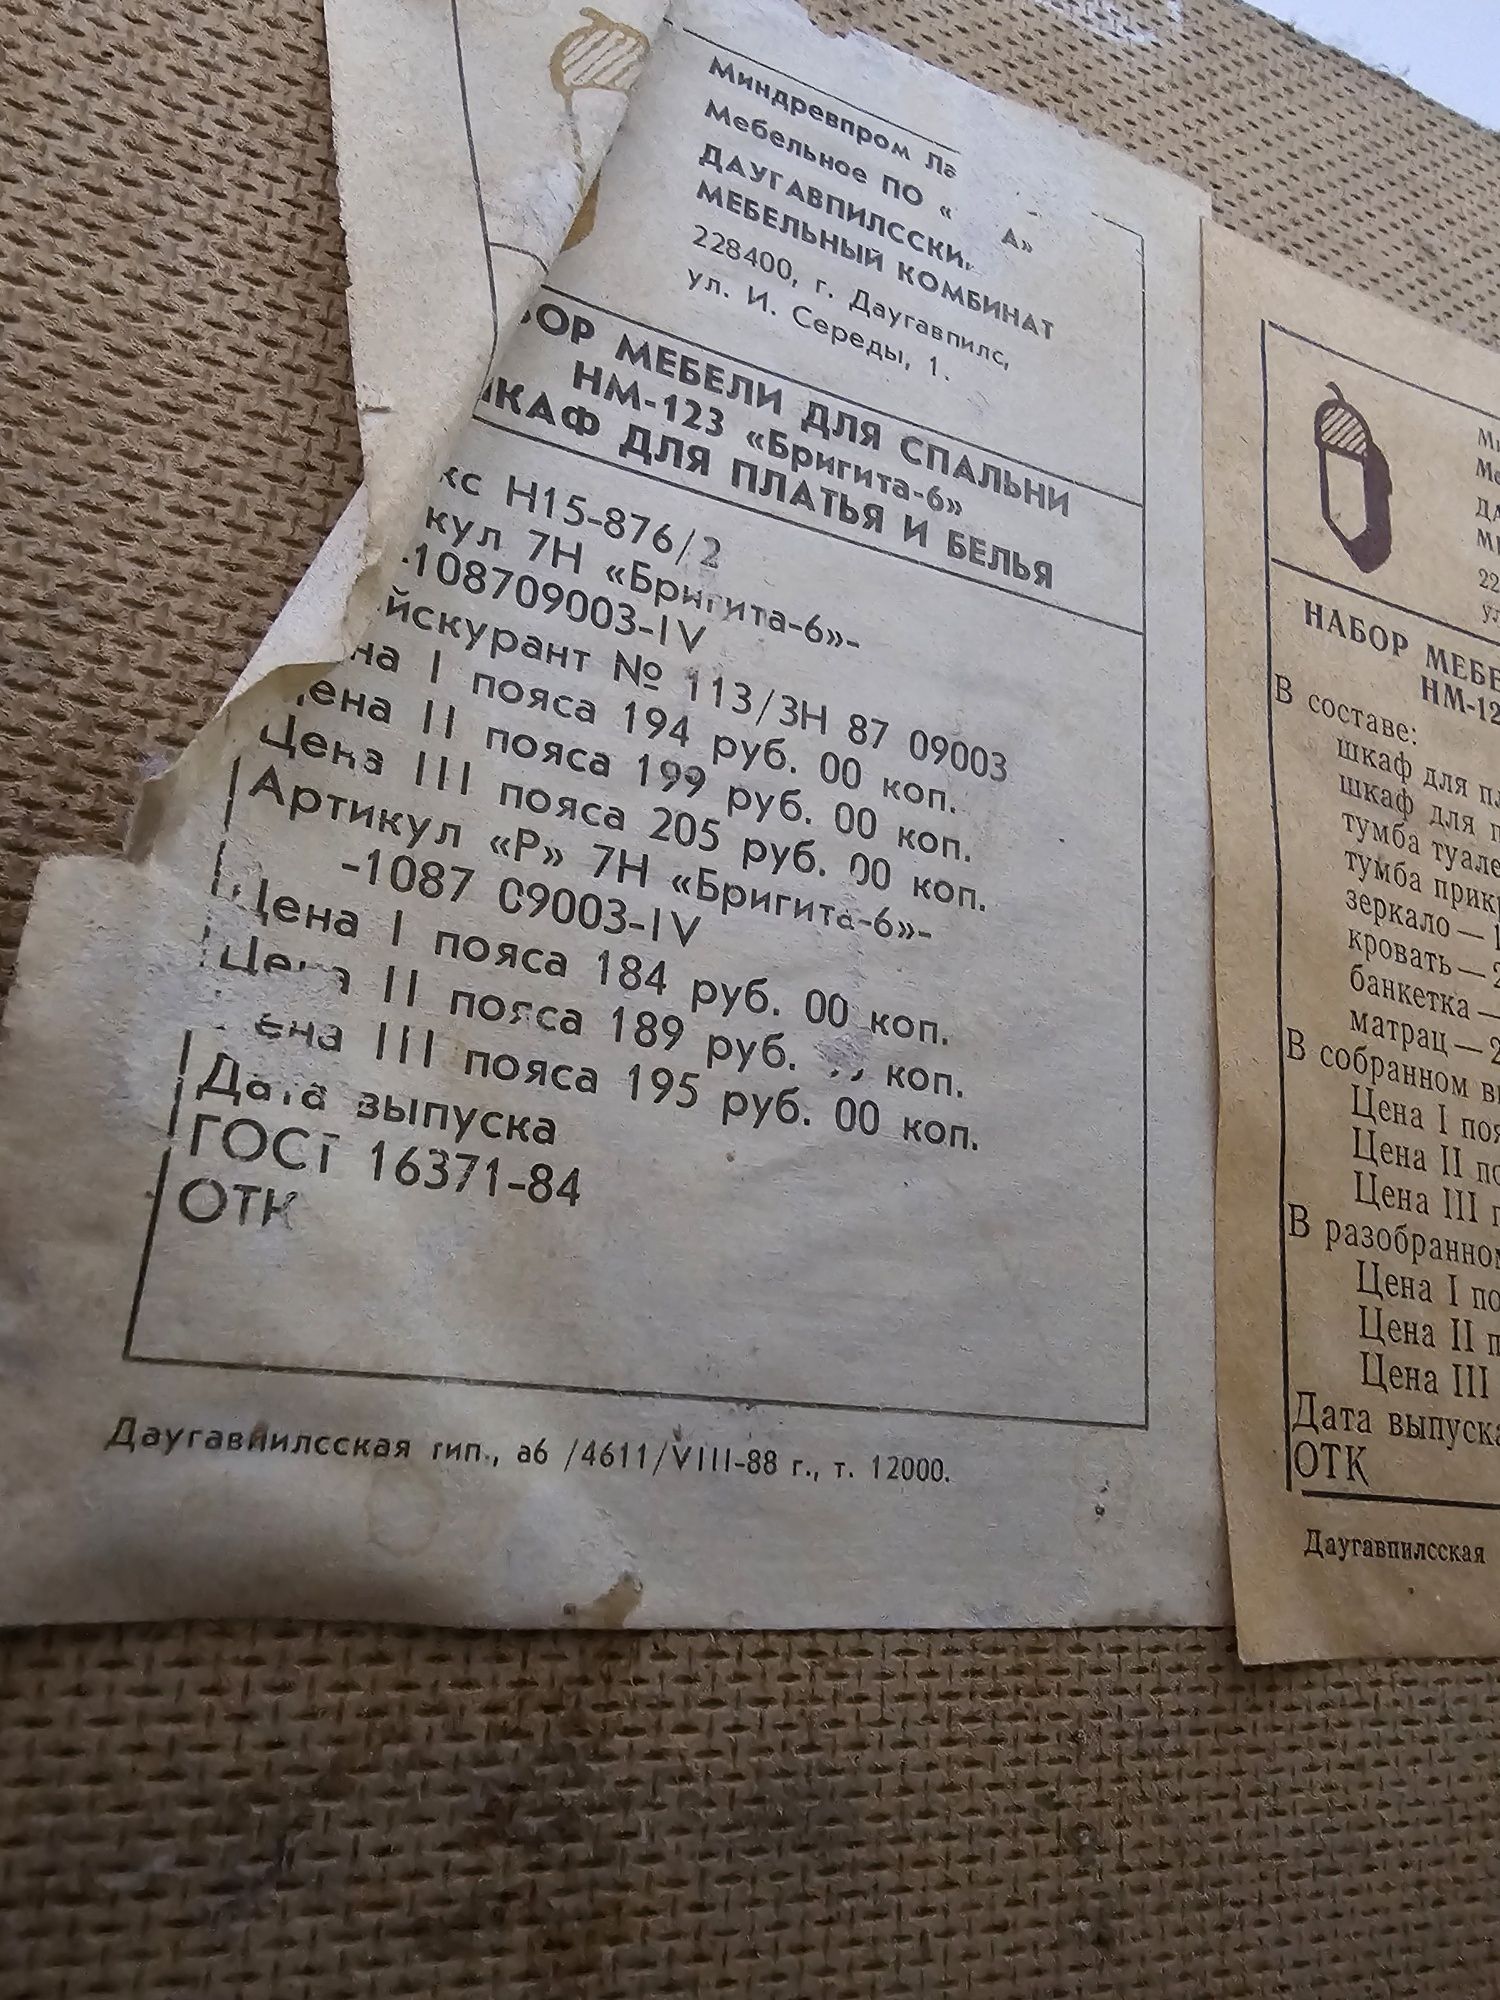 Миндревпром
Мебельное ПО «
А»
МЕБЕЛЬНЫЙ КОМБИНАТ
228400, г. Даугавпилс,
ул. И. Середы, 1.
МЕБЕЛИ ДЛЯ СПАЛЬНИ
НМ-123 «Бригита-6»
ДЛЯ ПЛАТЬЯ И БЕЛЬЯ
Н15-876/2
7Н «Бригита-6»-
-108709003-IV
№ 113/3Н 87 09003
I пояса 194 руб. 00 коп.
II пояса 199 руб. 00 коп.
Цена III пояса 205 руб. 00 коп.
Артикул «Р» 7Н «Бригита-6»-
-1087 09003-IV
Цена I пояса 184 руб. 00 коп.
Цена II пояса 189 руб. коп.
III пояса 195 руб. 00 коп.
Дата выпуска
ГОСТ 16371-84
ОТК
Даугавпилсская тип., аб /4611/VIII-88 г., т. 12000.
НАБОР
В составе:
шкаф для
шкаф для
тумба
тумба
зеркало —
кровать —
банкетка —
матрац —
В собранном
Цена I
Цена II
Цена III
В
Цена I
Цена II
Цена III
Дата
ОТК
Даугавпилсская